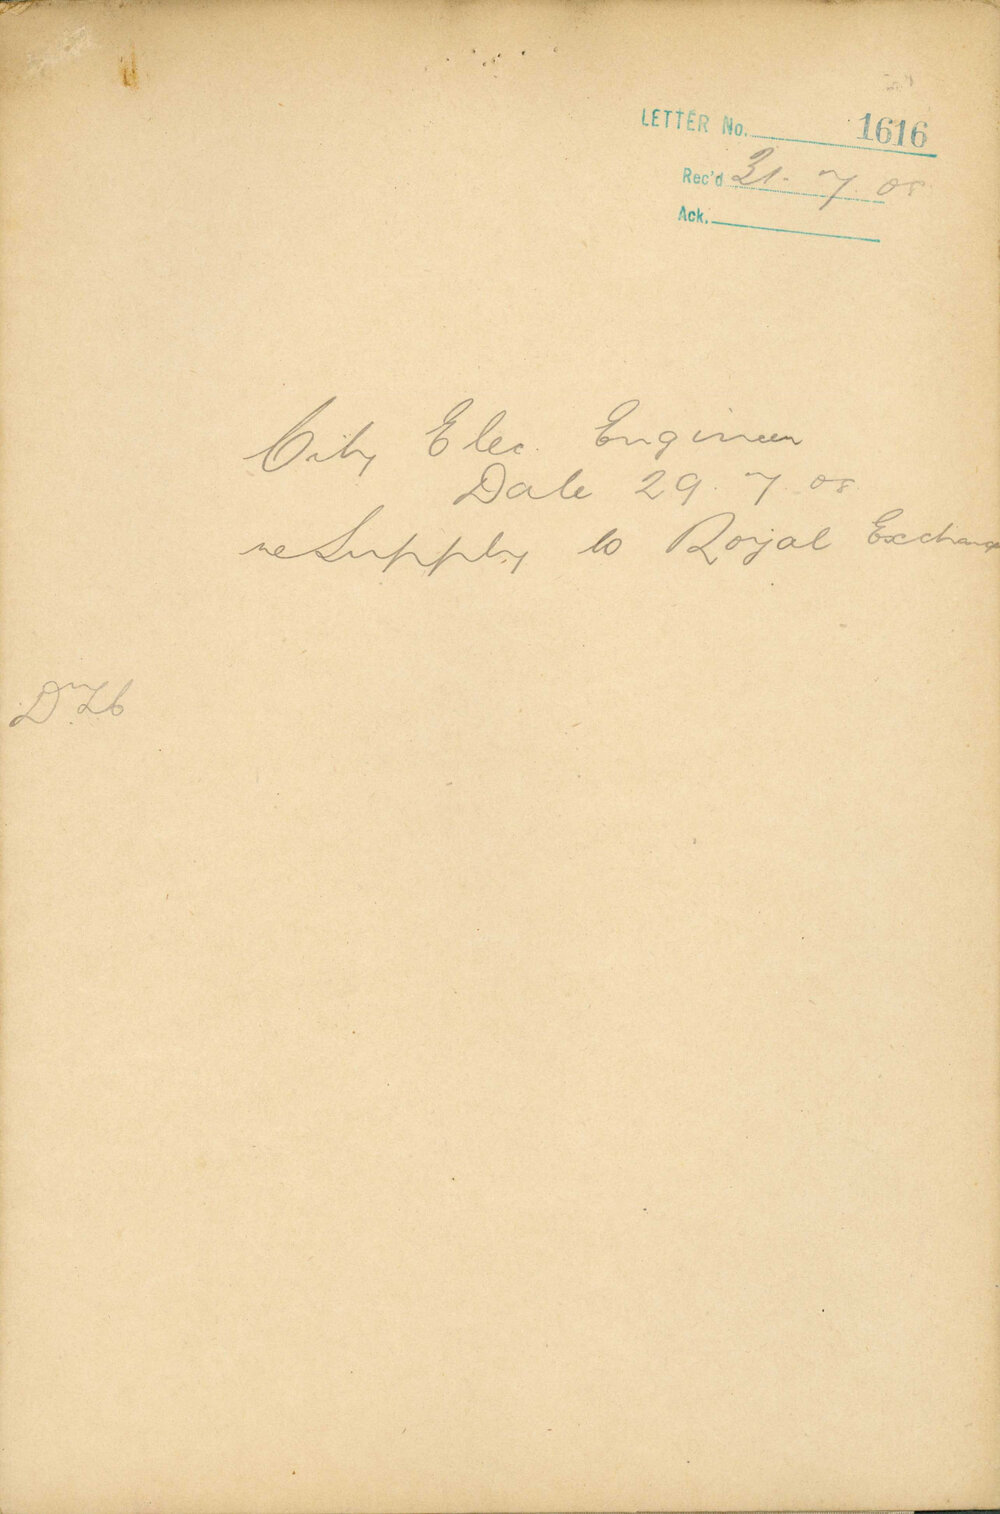 LETTER No. 1616
Rec'd 31. 7. 08
Ack.
City Elec. Engineer
Date 29. 7. 08
re Supply to Royal Exchange